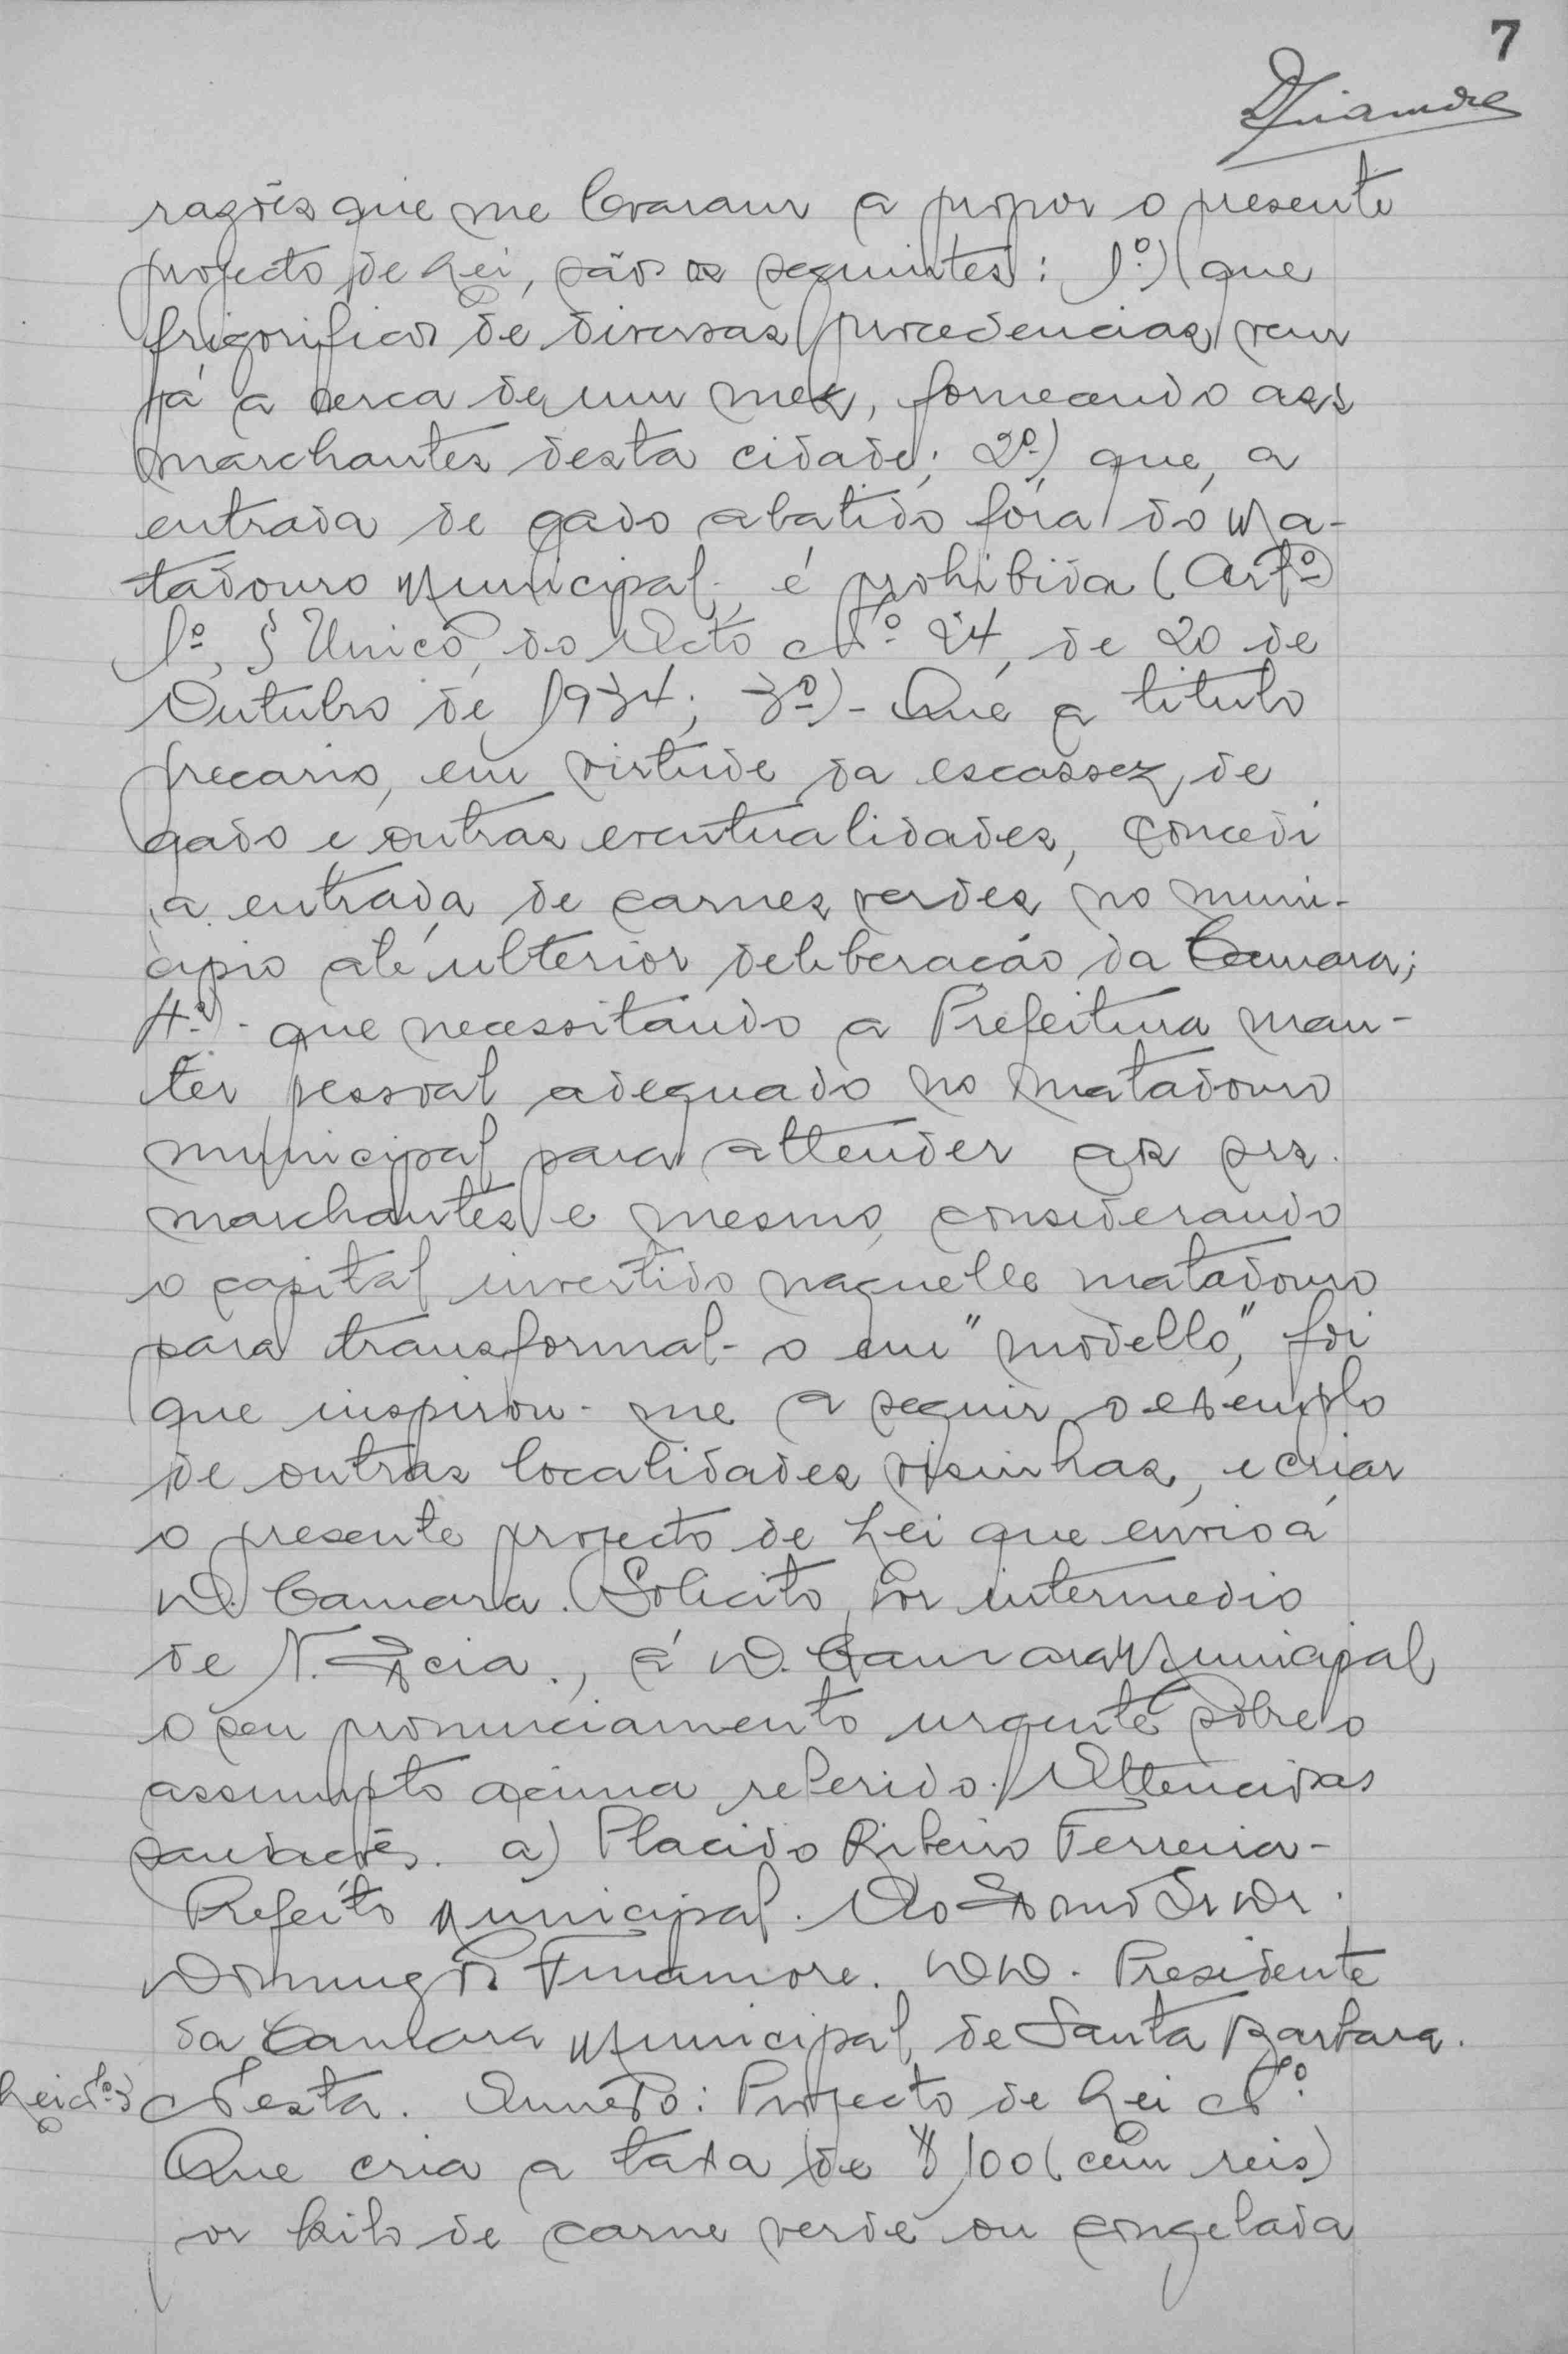 7
DFinamore
razões que me levaram a propor o presente
projecto de Lei, são as seguintes: 1º) que
frigorificos de diversas procedencias vem
já a cerca de um mez, fornecendo aos
marchantes desta cidade; 2º) que, a
entrada de gado abatido fóra do Ma-
tadouro Municipal, é prohibida (Artº
1º, § Unico, do Acto Nº 24, de 20 de
Outubro de 1934; 3º)- Que a titulo
precario, em virtude da escassez, de
gado e outras eventualidades, concedi
a entrada de carnes verdes no muni-
cipio até ulterior deliberacão da Camara;
4º)- que necessitando a Prefeitura man-
ter pessoal adequado no matadouro
municipal para attender aos srs.
marchantes e mesmo, considerando
o capital invertido naquelle matadouro
para transformal-o em "modello", foi
que inspirou-me a seguir o exemplo
de outras localidades visinhas, e criar
o presente projecto de Lei que envio á
D. Camara. Solicito, por intermedio
de V. Excia., á D. Camara Municipal
o seu pronunciamento urgente sobre o
assumpto acima referido. Attenciosas
saudacões. a) Placido Ribeiro Ferreira-
Prefeito Municipal. Ao Exmo Sr Dr.
Domingos Finamore. DD. Presidente
da Camara Municipal de Santa Barbara.
Lei Nº 3
Nesta. Annexo: Projecto de Lei Nº
Que cria a taxa de $100 (cem reis)
or kilo de carne verde ou congelada